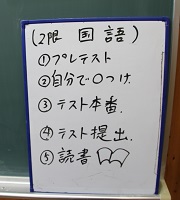 (2限 国語)
①プレテスト
②自分で○つけ.
③テスト本番.
④テスト提出.
⑤読書